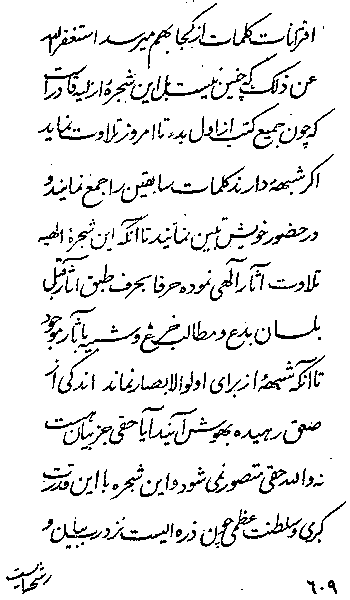 افرانات کلمات از کجا بهم میرسد استغفرالله
عن ذلک که چنین نیست بل این شجرهٔ ازلیه قادر است
که چون جمیع کتب از اول بدء تا امروز تلاوت نماید
اگر شبههٔ دارند کلمات سابقین را جمع نمایند و
در حضور خویش تبین نمایند تا آنکه این شجرهٔ الهیه
تلاوت آثار آلهی نموده حرفا بحرف طبق آثار قبل
بلسان بدع و مطالب و شریه با آثار موجود
تا آنکه شبههٔ از برای اولوالابصار نماند اندکی از
صعق رهیده بهوش آیند آیا حقی جز بیان هست
نه والله حقی متصور نمی شود و این شجره با این قدرت
کبری و سلطنت عظمی چون ذره ایست نزد رب بیان و
۶۰۹